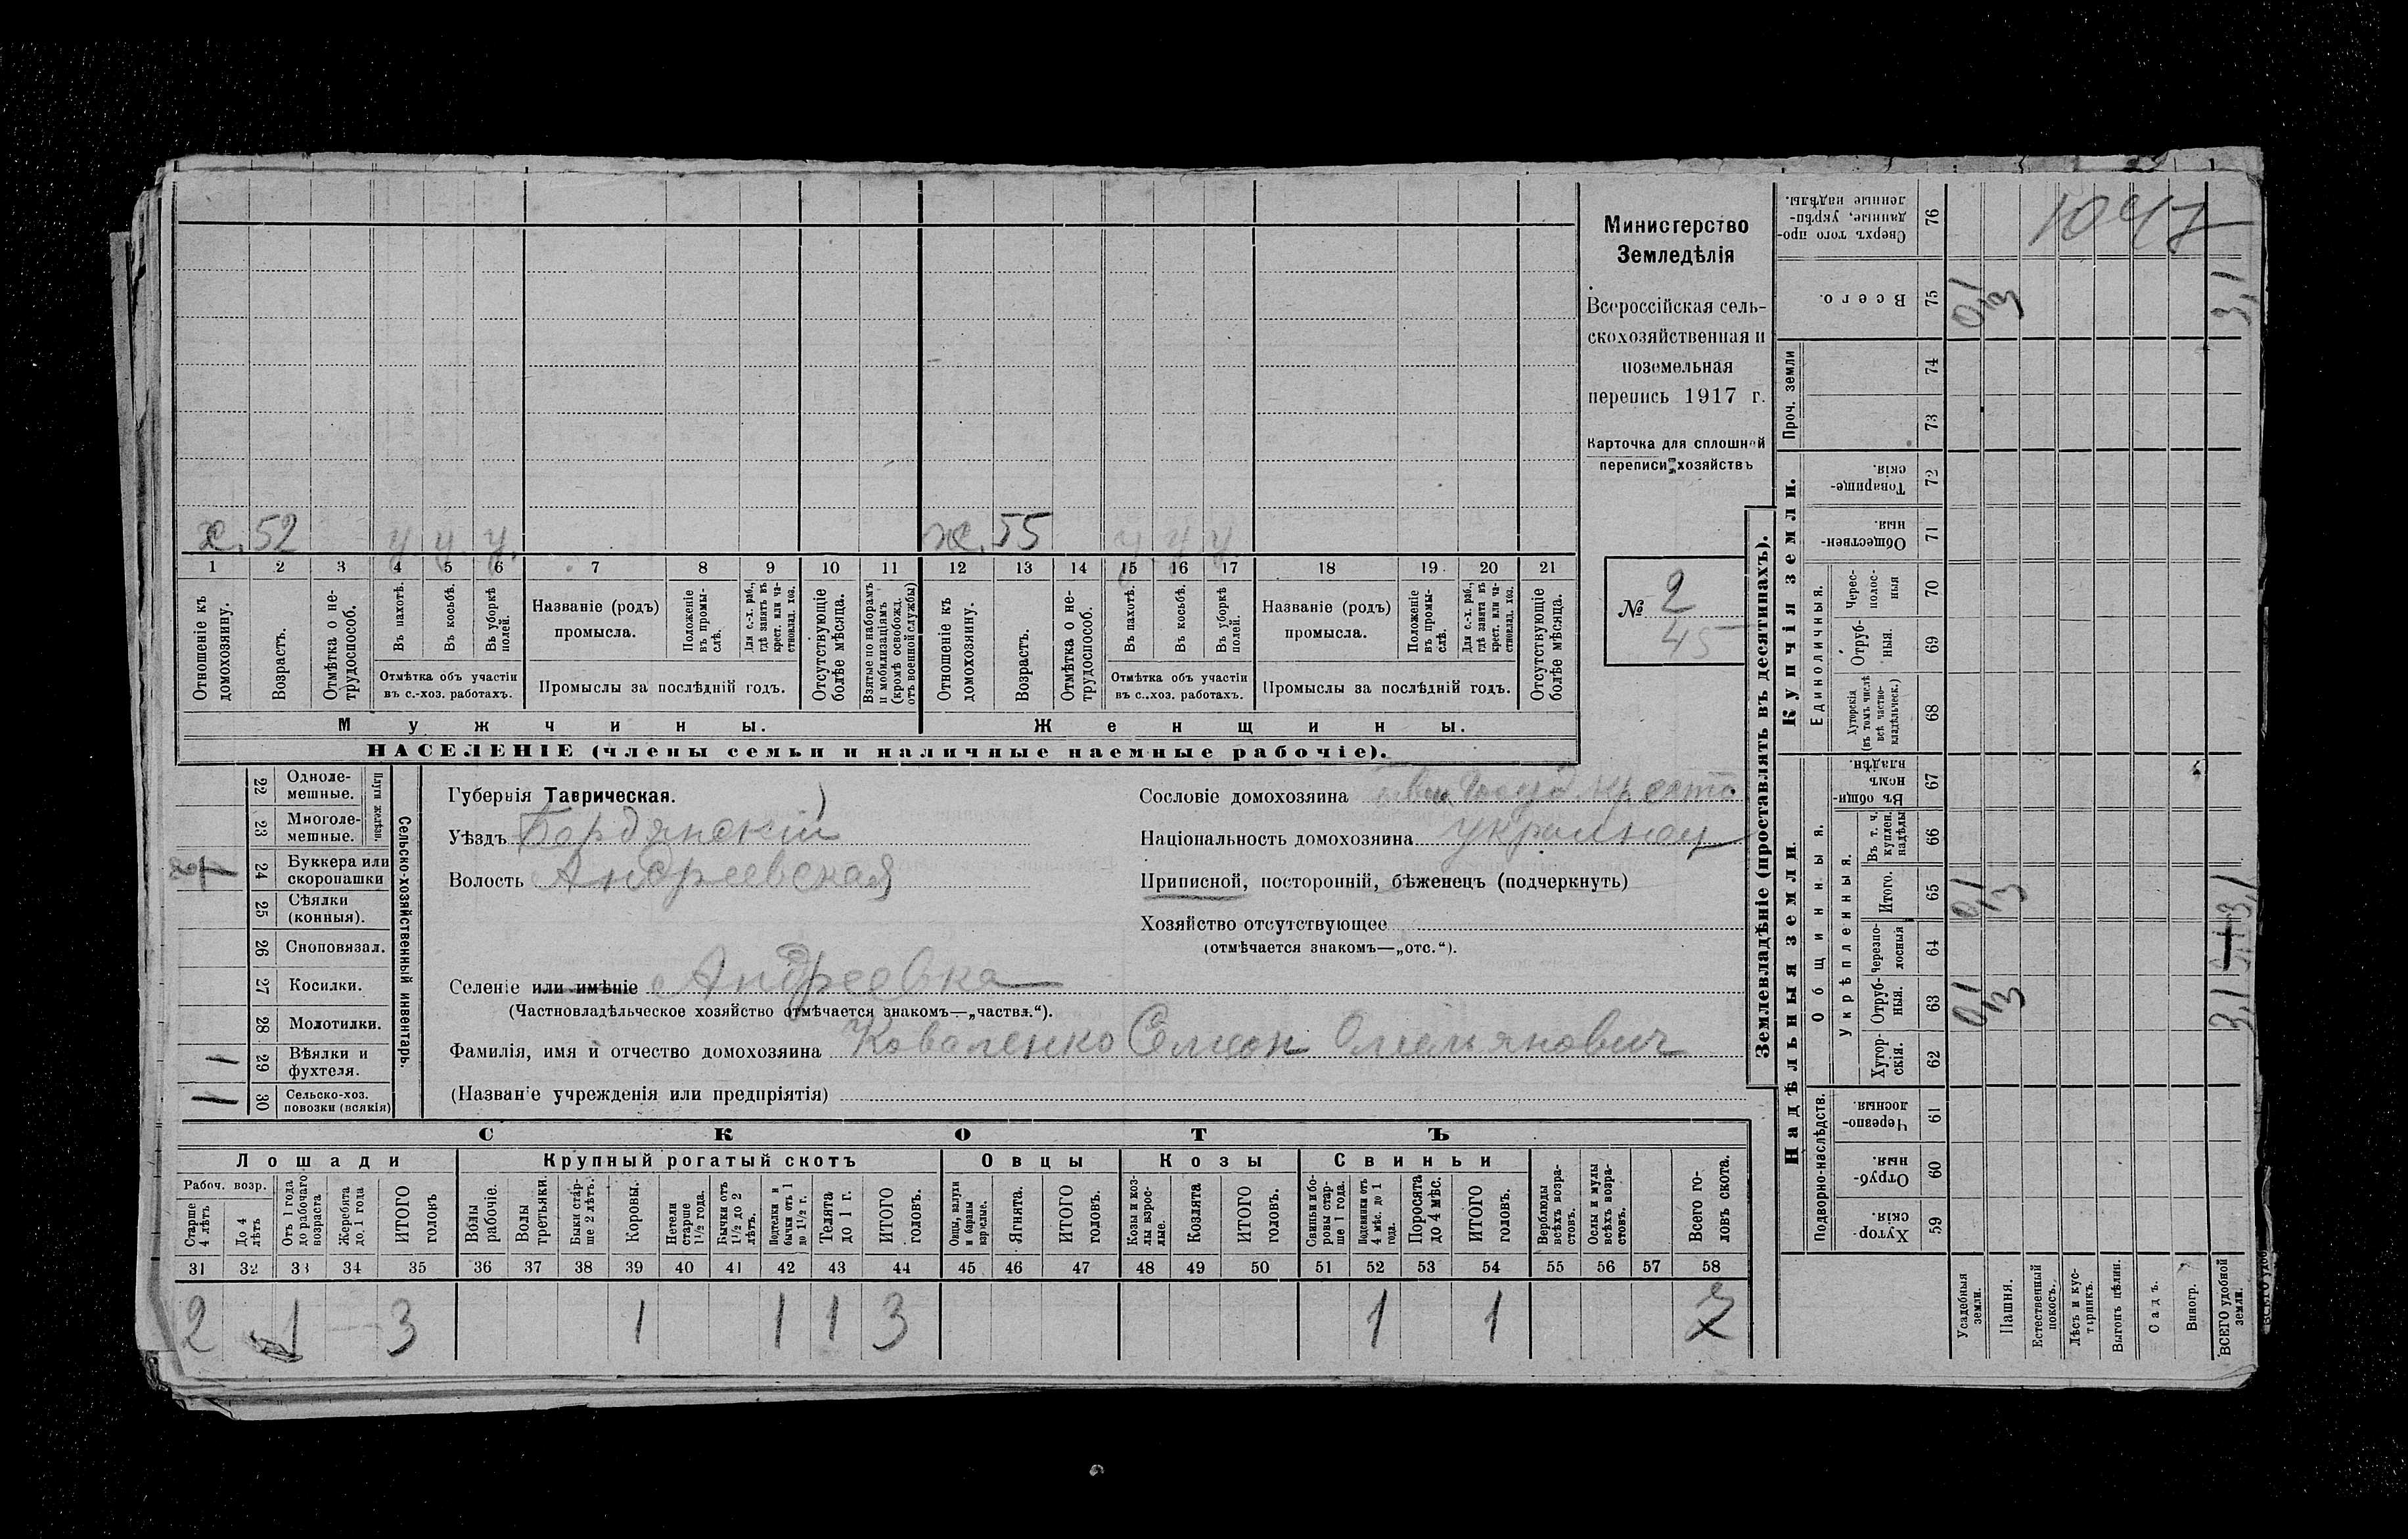 Министерство
Земледѣлія
Всероссійская сель-
скохозяйственная и
поземельная
перепись 1917 г.
Карточка для сплошной
переписи хозяйствъ
№ 2
45
х. 52 у у. у. ж. 55 у у у
1 2 3 4 5 6 7 8 9 10 11 12 13 14 15 16 17 18 19 20 21
Отношеніе къ домохозяину.
Возрастъ.
Отмѣтка о не-трудоспособ.
Въ пахотѣ.
Въ косьбѣ.
Въ уборкѣ полей.
Отмѣтка объ участіи въ с.-хоз. работахъ.
Названіе (родъ) промысла.
Положеніе въ промы-слѣ.
Для с.-х. раб., гдѣ занятъ въ крест. или ча-стновлад. хоз.
Промыслы за послѣдній годъ.
Отсутствующіе болѣе мѣсяца.
Взятые по наборамъ и мобилизаціямъ (кромѣ освобожд. отъ военной службы)
Отношеніе къ домохозяину.
Возрастъ.
Отмѣтка о не-трудоспособ.
Въ пахотѣ.
Въ косьбѣ.
Въ уборкѣ полей.
Отмѣтка объ участіи въ с..хоз. работахъ.
Названіе (родъ) промысла.
Положеніе въ промы-слѣ.
Для с.-х. раб., гдѣ занята въ крест. или ча-стновлад. хоз.
Промыслы за послѣдній годъ.
Отсутствующіе болѣе мѣсяца.
Мужчины. Женщины.
НАСЕЛЕНІЕ (члены семьи и наличные наемные рабочіе).
Сельско-хозяйственный инвентарь.
Плуги желѣзн.
22 Одноле-мешные.
23 Многоле-мешные.
24 Буккера или скоропашки
25 Сѣялки (конныя).
26 Сноповязал.
27 Косилки.
28 Молотилки.
29 Вѣялки и фухтеля. 1
30 Сельско-хоз. повозки (всякія) 1
Губернія Таврическая.
Уѣздъ Бердянскій
Волость Андреевская
Сословіе домохозяина
Національность домохозяина украинец
Приписной, посторонній, бѣженецъ (подчеркнуть)
Хозяйство отсутствующее
(отмѣчается знакомъ—„отс.“).
Селеніе или имѣніе Андреевка
(Частновладѣльческое хозяйство отмѣчается знакомъ—„частвл.“).
Фамилія, имя и отчество домохозяина Коваленко Семен Омельянович
(Названіе учрежденія или предпріятія)
СКОТЪ
Лошади Крупный рогатый скотъ Овцы Козы Свиньи
Рабоч. возр.
Старше 4 лѣтъ
До 4 лѣтъ
Отъ 1 года до рабочаго возраста
Жеребята до 1 года
ИТОГО головъ
Волы рабочіе.
Волы третьяки.
Быки стар-ше 2 лѣтъ.
Коровы.
Нетели старше 1½ года.
Бычки отъ 1½ до 2 лѣтъ.
Подтелки и бычки отъ 1 до 1½ г.
Телята до 1 г.
ИТОГО головъ.
Овцы, валухи и бараны взрослые.
Ягнята.
ИТОГО головъ.
Козы и коз-лы взрос-лые.
Козлята
ИТОГО головъ.
Свиньи и бо-ровы стар-ше 1 года.
Подсвинки отъ 4 мѣс. до 1 года.
Поросята до 4 мѣс.
ИТОГО головъ.
Верблюды всѣхъ возра-стовъ.
Ослы и мулы всѣхъ возра-стовъ.
Всего го-ловъ скота.
31 32 33 34 35 36 37 38 39 40 41 42 43 44 45 46 47 48 49 50 51 52 53 54 55 56 57 58
2 1 — 3 1 1 1 3 1 1 7
Землевладѣніе (проставлять въ десятинахъ).
Купчія земли.
Надѣльныя земли
1047
76 Сверхъ того про-данные, укрѣп-ленные надѣлы.
75 Всего. 0,1 3 3,1
Проч. земли
74
73
72 Товарище-скія.
71 Обществен-ныя.
Единоличныя.
70 Черес-полос-ныя
69 Отруб-ныя.
68 Хуторскія (въ томъ числѣ всѣ частно-владѣльческ.)
Общинныя.
67 Въ общи-номъ владѣн.
66 Въ т. ч. куплен. надѣлы
Укрѣпленныя.
65 Итого. 0,1 3 3,1
64 Черезпо-лосныя
63 Отруб-ныя. 0,1 3 3,1
62 Хутор-скія.
Подворно-наслѣдств.
61 Черезпо-лосныя.
60 Отруб-ныя.
59 Хутор-скія.
Усадебныя земли.
Пашня.
Естественный покосъ.
Лѣсъ и кус-тарникъ.
Выгонъ цѣлин.
Садъ.
Виногр.
ВСЕГО удобной земли.